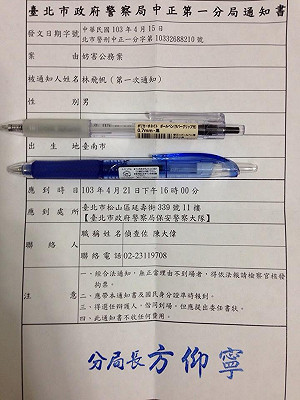 臺北市政府警察局中正第一分局通知書
發文日期字號 中華民國 103 年 4 月 15 日
北市警刑中正一分字第 10332688210 號
案由 妨害公務案
被通知人姓名 林飛帆 (第一次通知)
性別 男
0.7mm・黒
出生地 臺南市
應到時日 103 年 4 月 21 日下午 16 時 00 分
應到處所 臺北市松山區延壽街 339 號 11 樓
【臺北市政府警察局保安警察大隊】
聯絡人 職稱姓名 偵查佐 陳大偉
聯絡電話 02-23119708
注意 一、經合法通知,無正當理由不到場者,得依法報請檢察官核發
拘票。
二、應帶本通知書及國民身分證準時報到。
三、得選任辯護人,偕同到場,但應提出委任書狀。
四、此通知書不收任何費用。
分局長 方仰寧